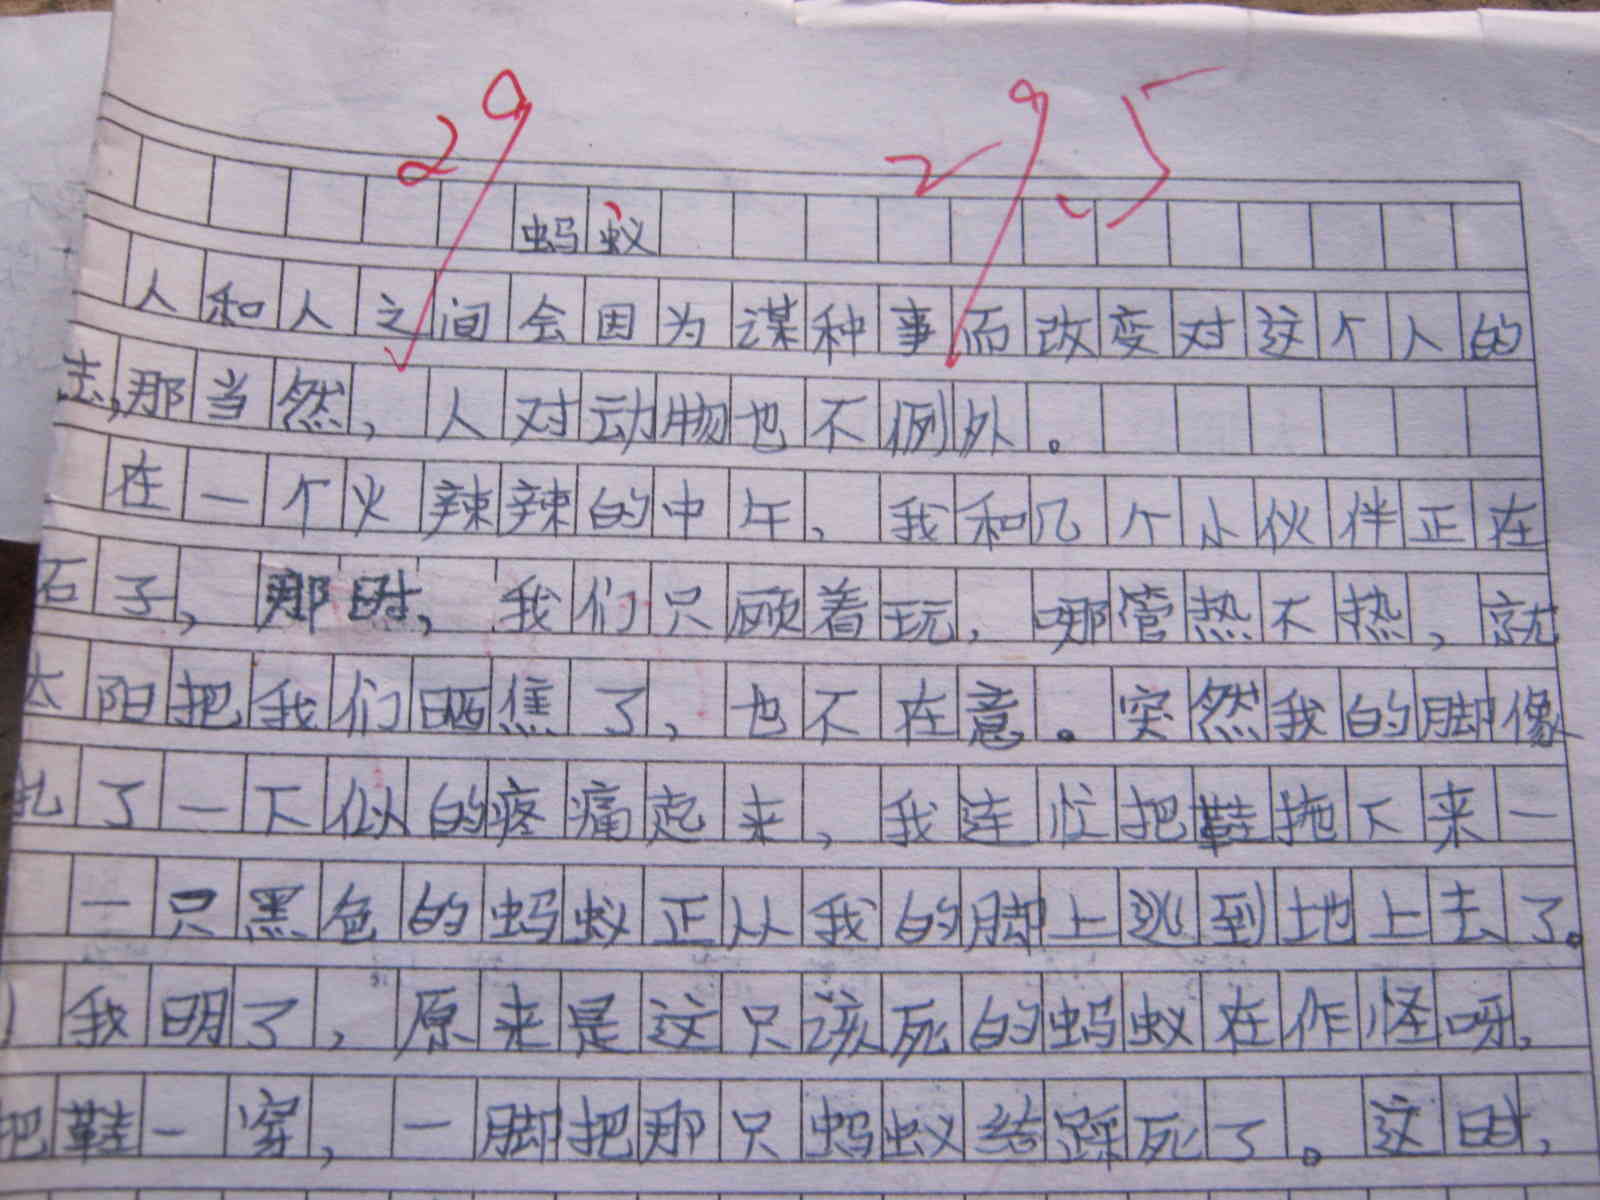 29 29.5
蚂蚁
人和人之间会因为谋种事而改变对这个人的
去,那当然,人对动物也不例外。
在一个火辣辣的中午,我和几个小伙伴正在
石子,那时,我们只顾着玩,哪管热不热,就
太阳把我们晒焦了,也不在意。突然我的脚像
扎了一下似的疼痛起来,我连忙把鞋拖下来一
一只黑色的蚂蚁正从我的脚上逃到地上去了。
我明了,原来是这只该死的蚂蚁在作怪呀,
把鞋一穿,一脚把那只蚂蚁给踩死了。这时,